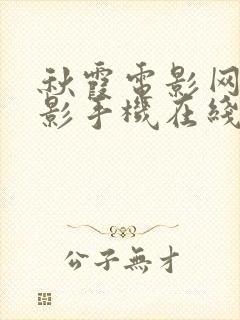 秋霞電影网
影手機在綫
公子無才